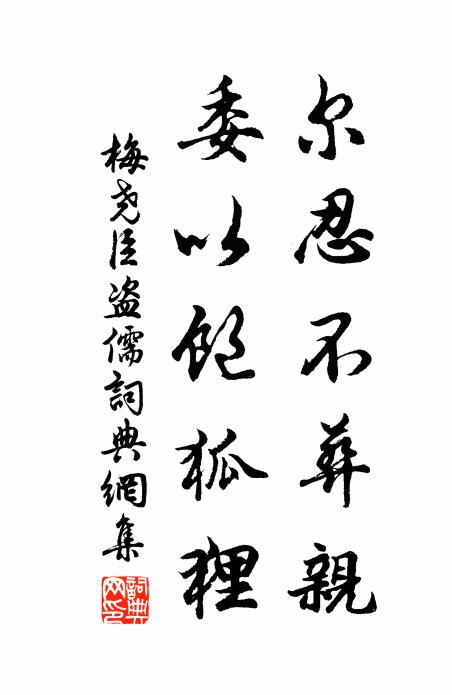 尔忍不葬親
委以飽狐狸
梅堯臣盗儒詞典網集
詞典网印